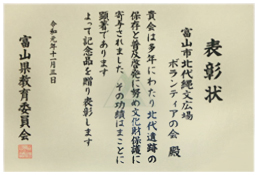 表彰状
富山市北代縄文広場
ボランティアの会 殿
貴会は多年にわたり北代遺跡の
保存と普及啓発に努め文化財保護に
寄与されました その功績はまことに
顕著であります
よって記念品を贈り表彰します
令和元年十一月三日
富山県教育委員会